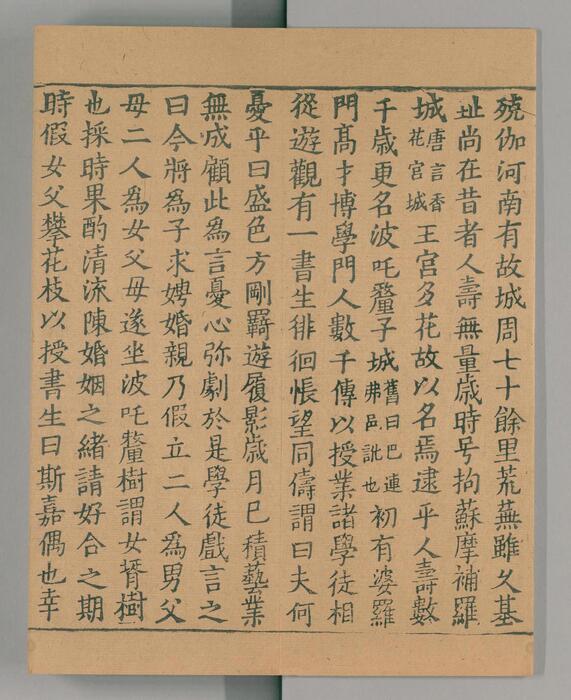 殑伽河南有故城周七十餘里荒蕪雖久基
址尚在昔者人壽無量歲時号拘蘇摩補羅
城唐言香花宮城王宮多花故以名焉逮乎人壽數
千歲更名波吒釐子城舊曰巴連弗邑訛也初有婆羅
門髙才博學門人數千傳以授業諸學徒相
從遊觀有一書生徘徊悵望同儔謂曰夫何
憂乎曰盛色方剛羇遊履影歲月已積藝業
無成顧此為言憂心弥劇於是學徒戲言之
曰今將為子求娉婚親乃假立二人為男父
母二人為女父母遂坐波吒釐樹謂女壻樹
也採時果酌清流陳婚姻之緒請好合之期
時假女父攀花枝以授書生曰斯嘉偶也幸